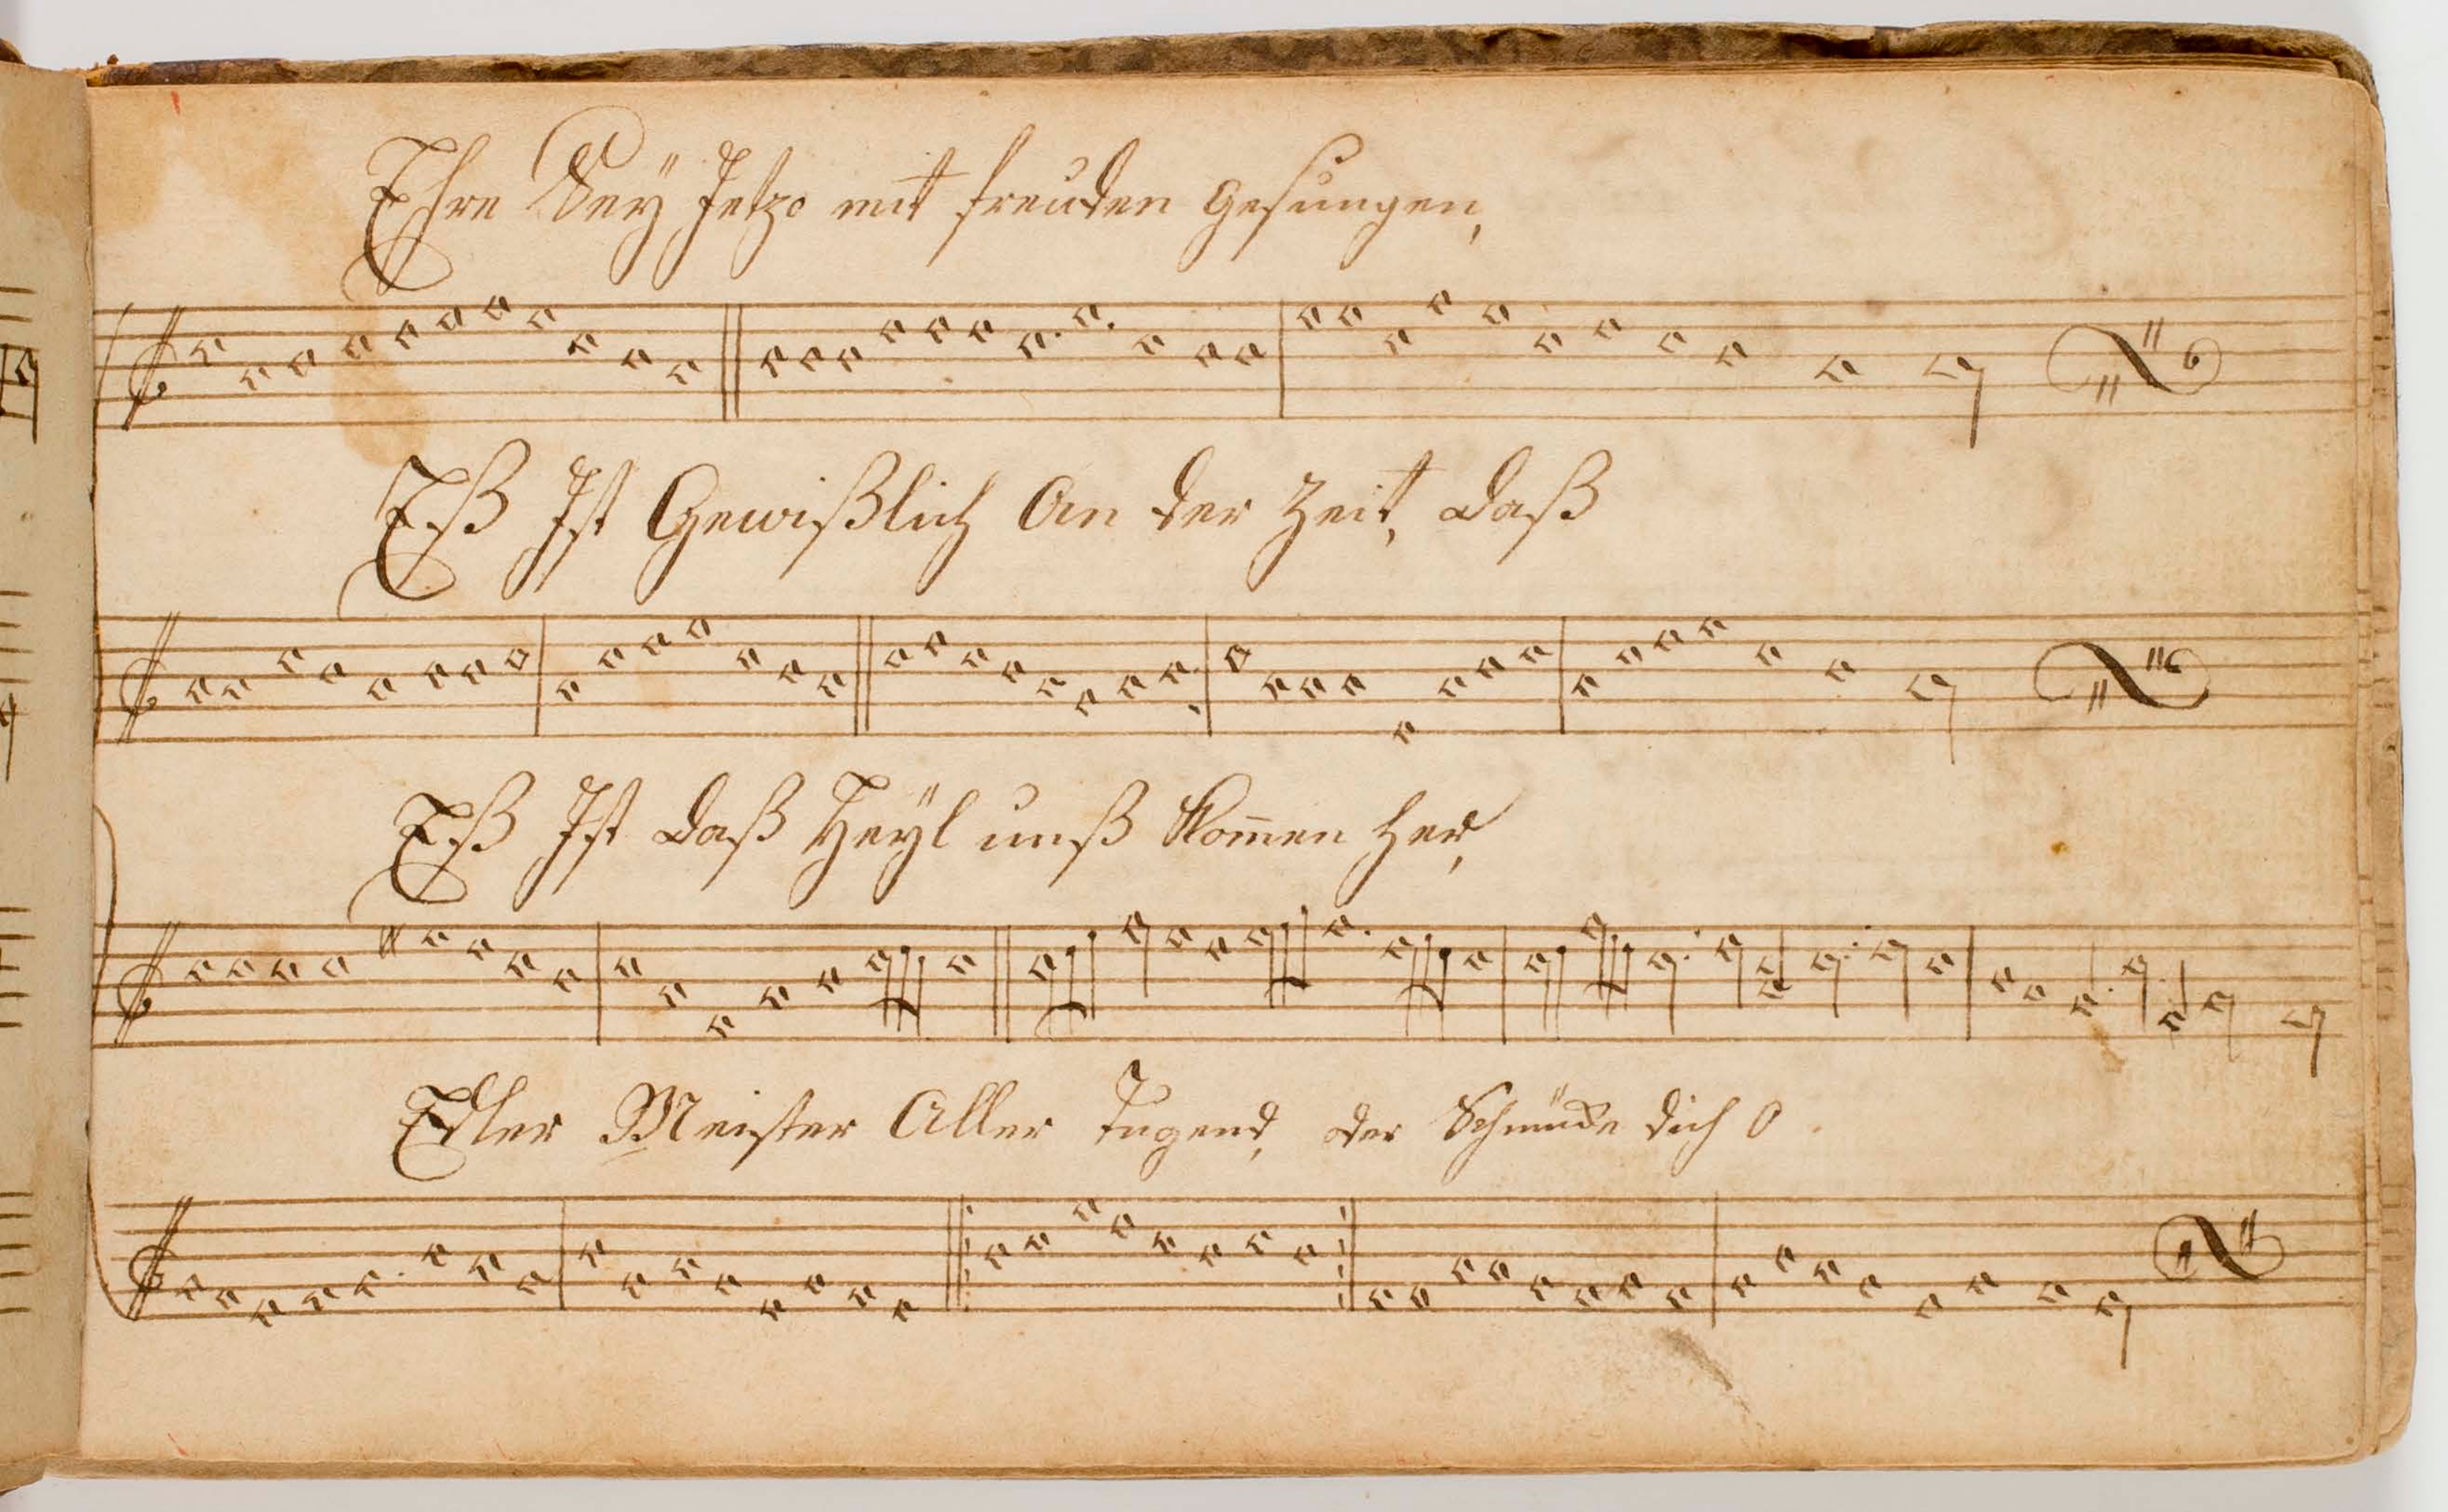 Ehre Seÿ Jetzo mit freuden gesungen,
Eß Ist Gewißlich An der Zeit, daß
Eß Ist daß Heÿl unß Kom̄en her,
Edler Meister Aller Tugend, oder Schmücke dich O